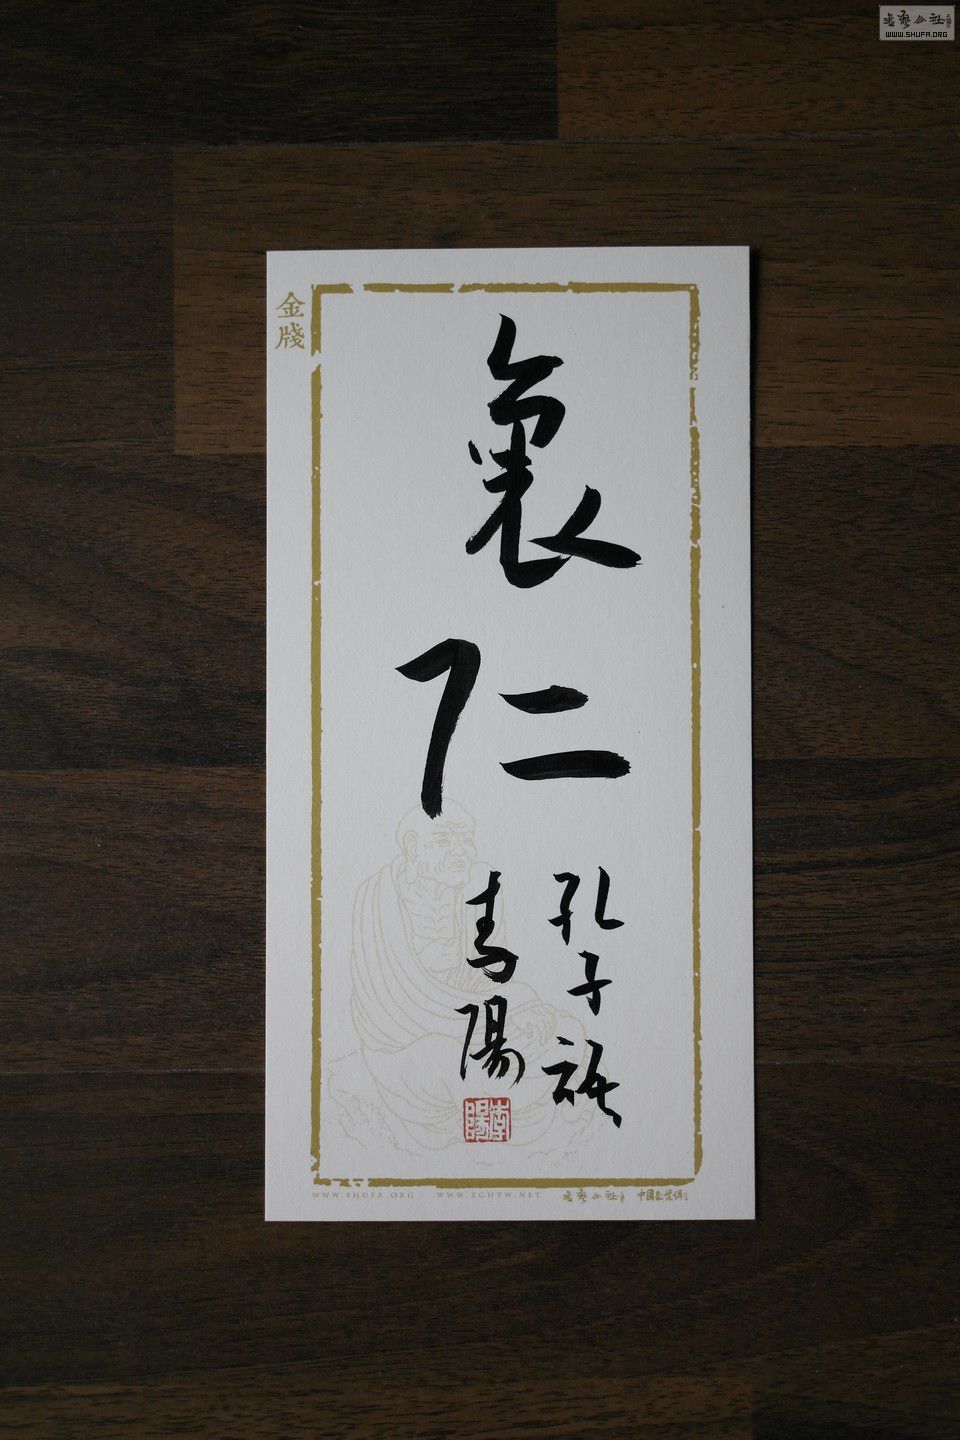 書藝公社
WWW.SHUFA.ORG
金牋
裏
仁
孔子語
陽
WWW.SHUFA.ORG WWW.ZGHTW.NET 書藝公社